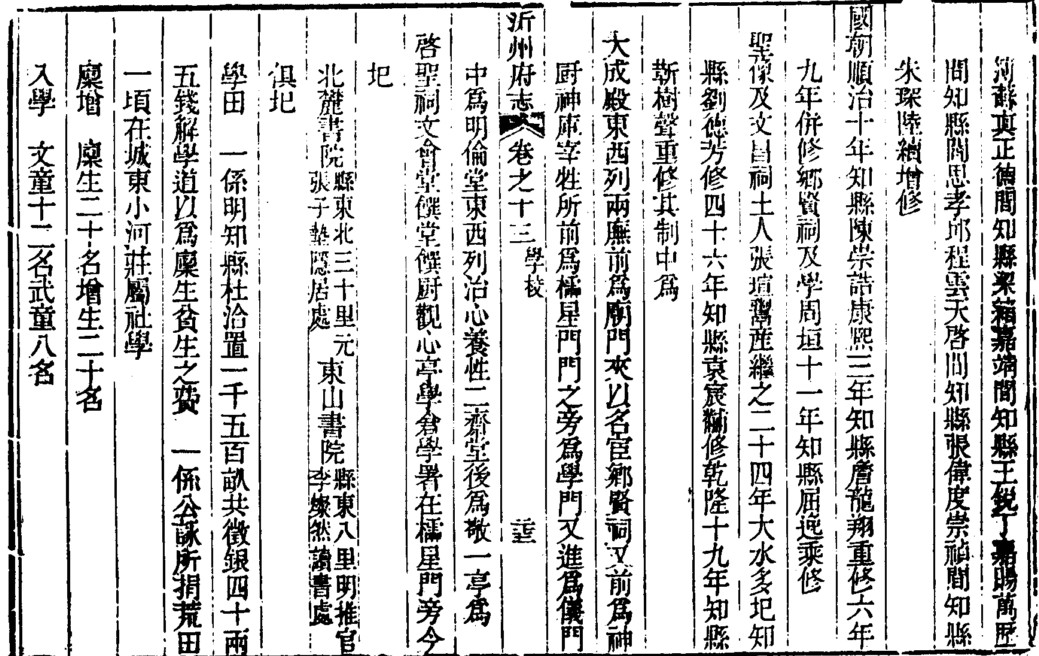 河蘇真正德間知縣梁箱嘉靖間知縣王銳丁嘉暘萬歷
間知縣閻思孝邱程雲天啓間知縣張偉度崇禎間知縣
朱琛陸續增修
國朝順治十年知縣陳崇誥康熙三年知縣詹龍翔重修六年
九年併修鄉賢祠及學周垣十一年知縣屈逸乘修
聖像及文昌祠土人張瑄鬻産繼之二十四年大水多圮知
縣劉德芳修四十六年知縣袁宸黼修乾隆十九年知縣
靳樹聲重修其制中爲
大成殿東西列兩廡前爲廟門夾以名宦鄉賢祠又前爲神
厨神庫宰牲所前爲櫺星門門之旁爲學門又進爲儀門
沂州府志 卷之十三 學校
中爲明倫堂東西列治心養性二齋堂後爲敬一亭爲
啓聖祠文會堂饌堂饌厨觀心亭學倉學署在櫺星門旁今
圮
北麓書院 縣東北三十里元張子塾隱居處 東山書院 縣東八里明推官李燦然讀書處
俱圮
學田 一係明知縣杜治置一千五百畝共徵銀四十兩
五錢解學道以爲廩生貧生之費 一係公詠所捐荒田
一頃在城東小河莊屬社學
廩增 廩生二十名增生二十名
入學 文童十二名武童八名